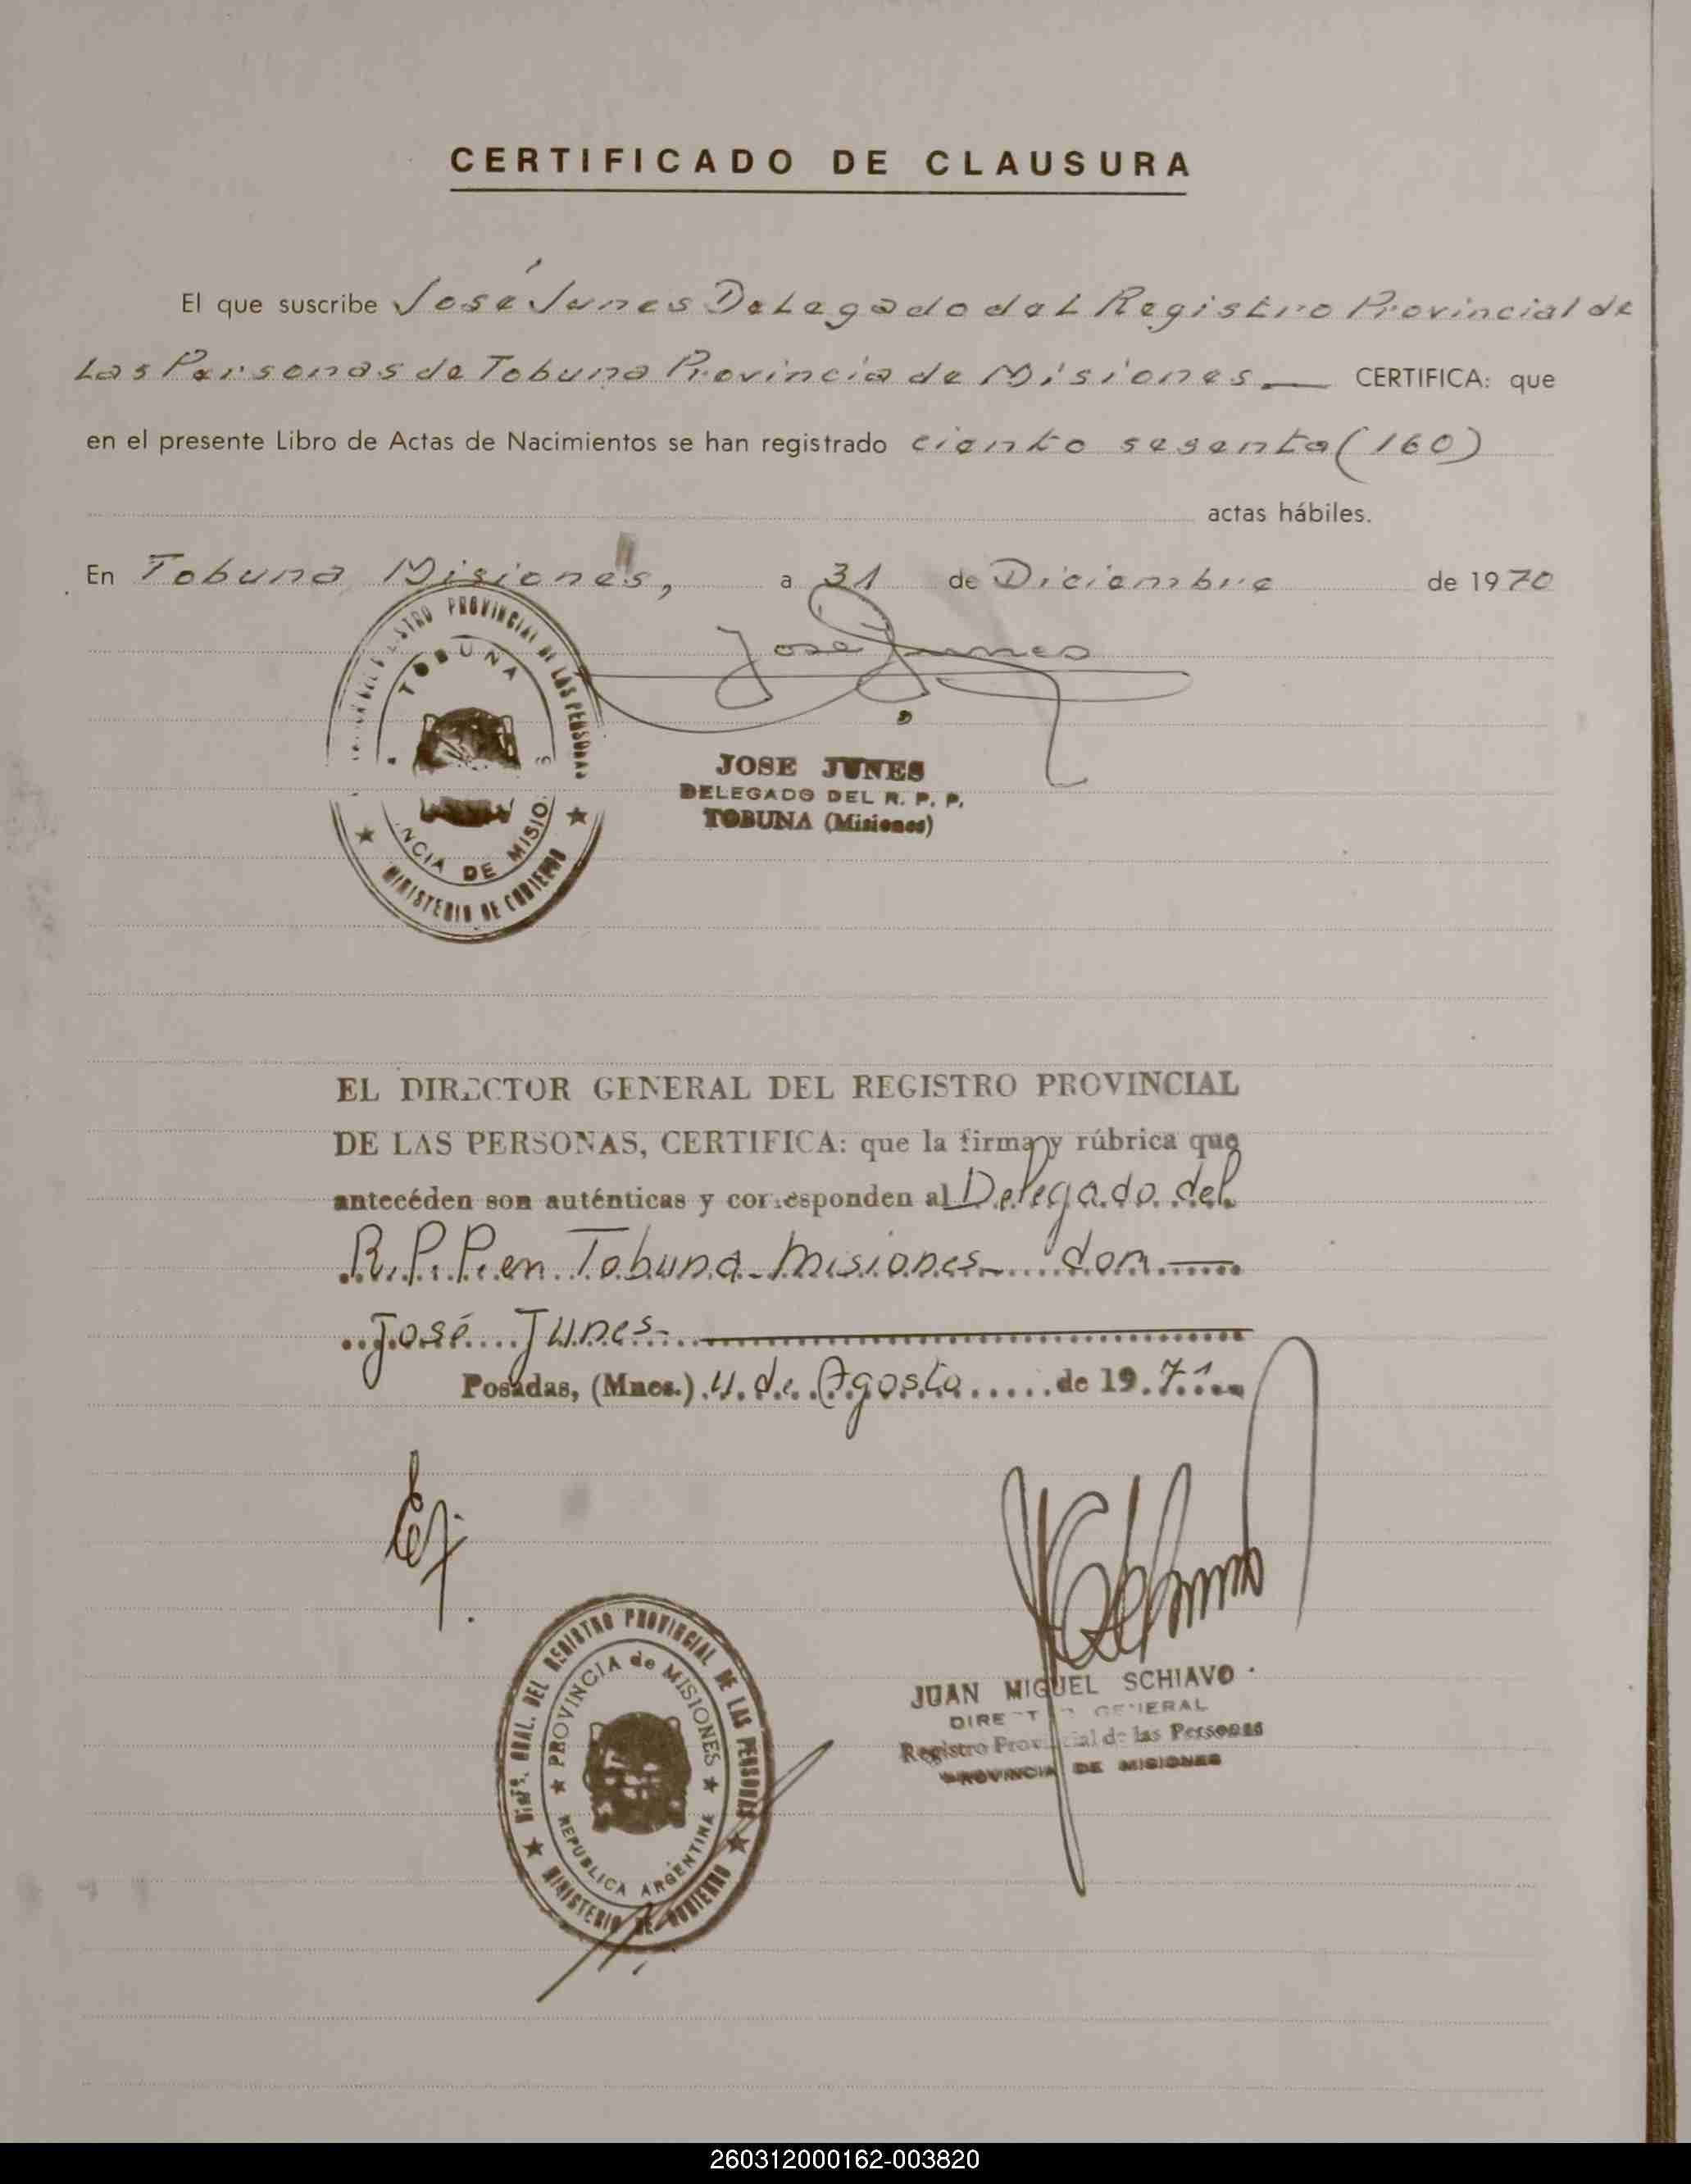 CERTIFICADO DE CLAUSURA
El que suscribe José Junes Delegado del Registro Provincial de
Las Personas de Tobuna Provincia de Misiones. CERTIFICA: que
en el presente Libro de Actas de Nacimientos se han registrado ciento sesenta (160)
actas hábiles.
En Tobuna Misiones, a 31 de Diciembre de 1970
José Junes
REGISTRO PROVINCIAL DE LAS PERSONAS
TOBUNA
JOSE JUNES
DELEGADO DEL R. P. P.
TOBUNA (Misiones)
NCIA DE MISIO S
MINISTERIO DE GOBIERNO
EL DIRECTOR GENERAL DEL REGISTRO PROVINCIAL
DE LAS PERSONAS, CERTIFICA: que la firma y rúbrica que
antecéden son auténticas y corresponden al Delegado del
R.P.P. en Tobuna - Misiones - don
José Junes
Posadas, (Mnes.) 4 de Agosto de 19 71
JUAN MIGUEL SCHIAVO
DIRECTOR GENERAL
Registro Provincial de las Personas
PROVINCIA DE MISIONES
DIREC. GRAL. DEL REGISTRO PROVINCIAL DE LAS PERSONAS
PROVINCIA de MISIONES
REPUBLICA ARGENTINA
MINISTERIO DE GOBIERNO
260312000162-003820